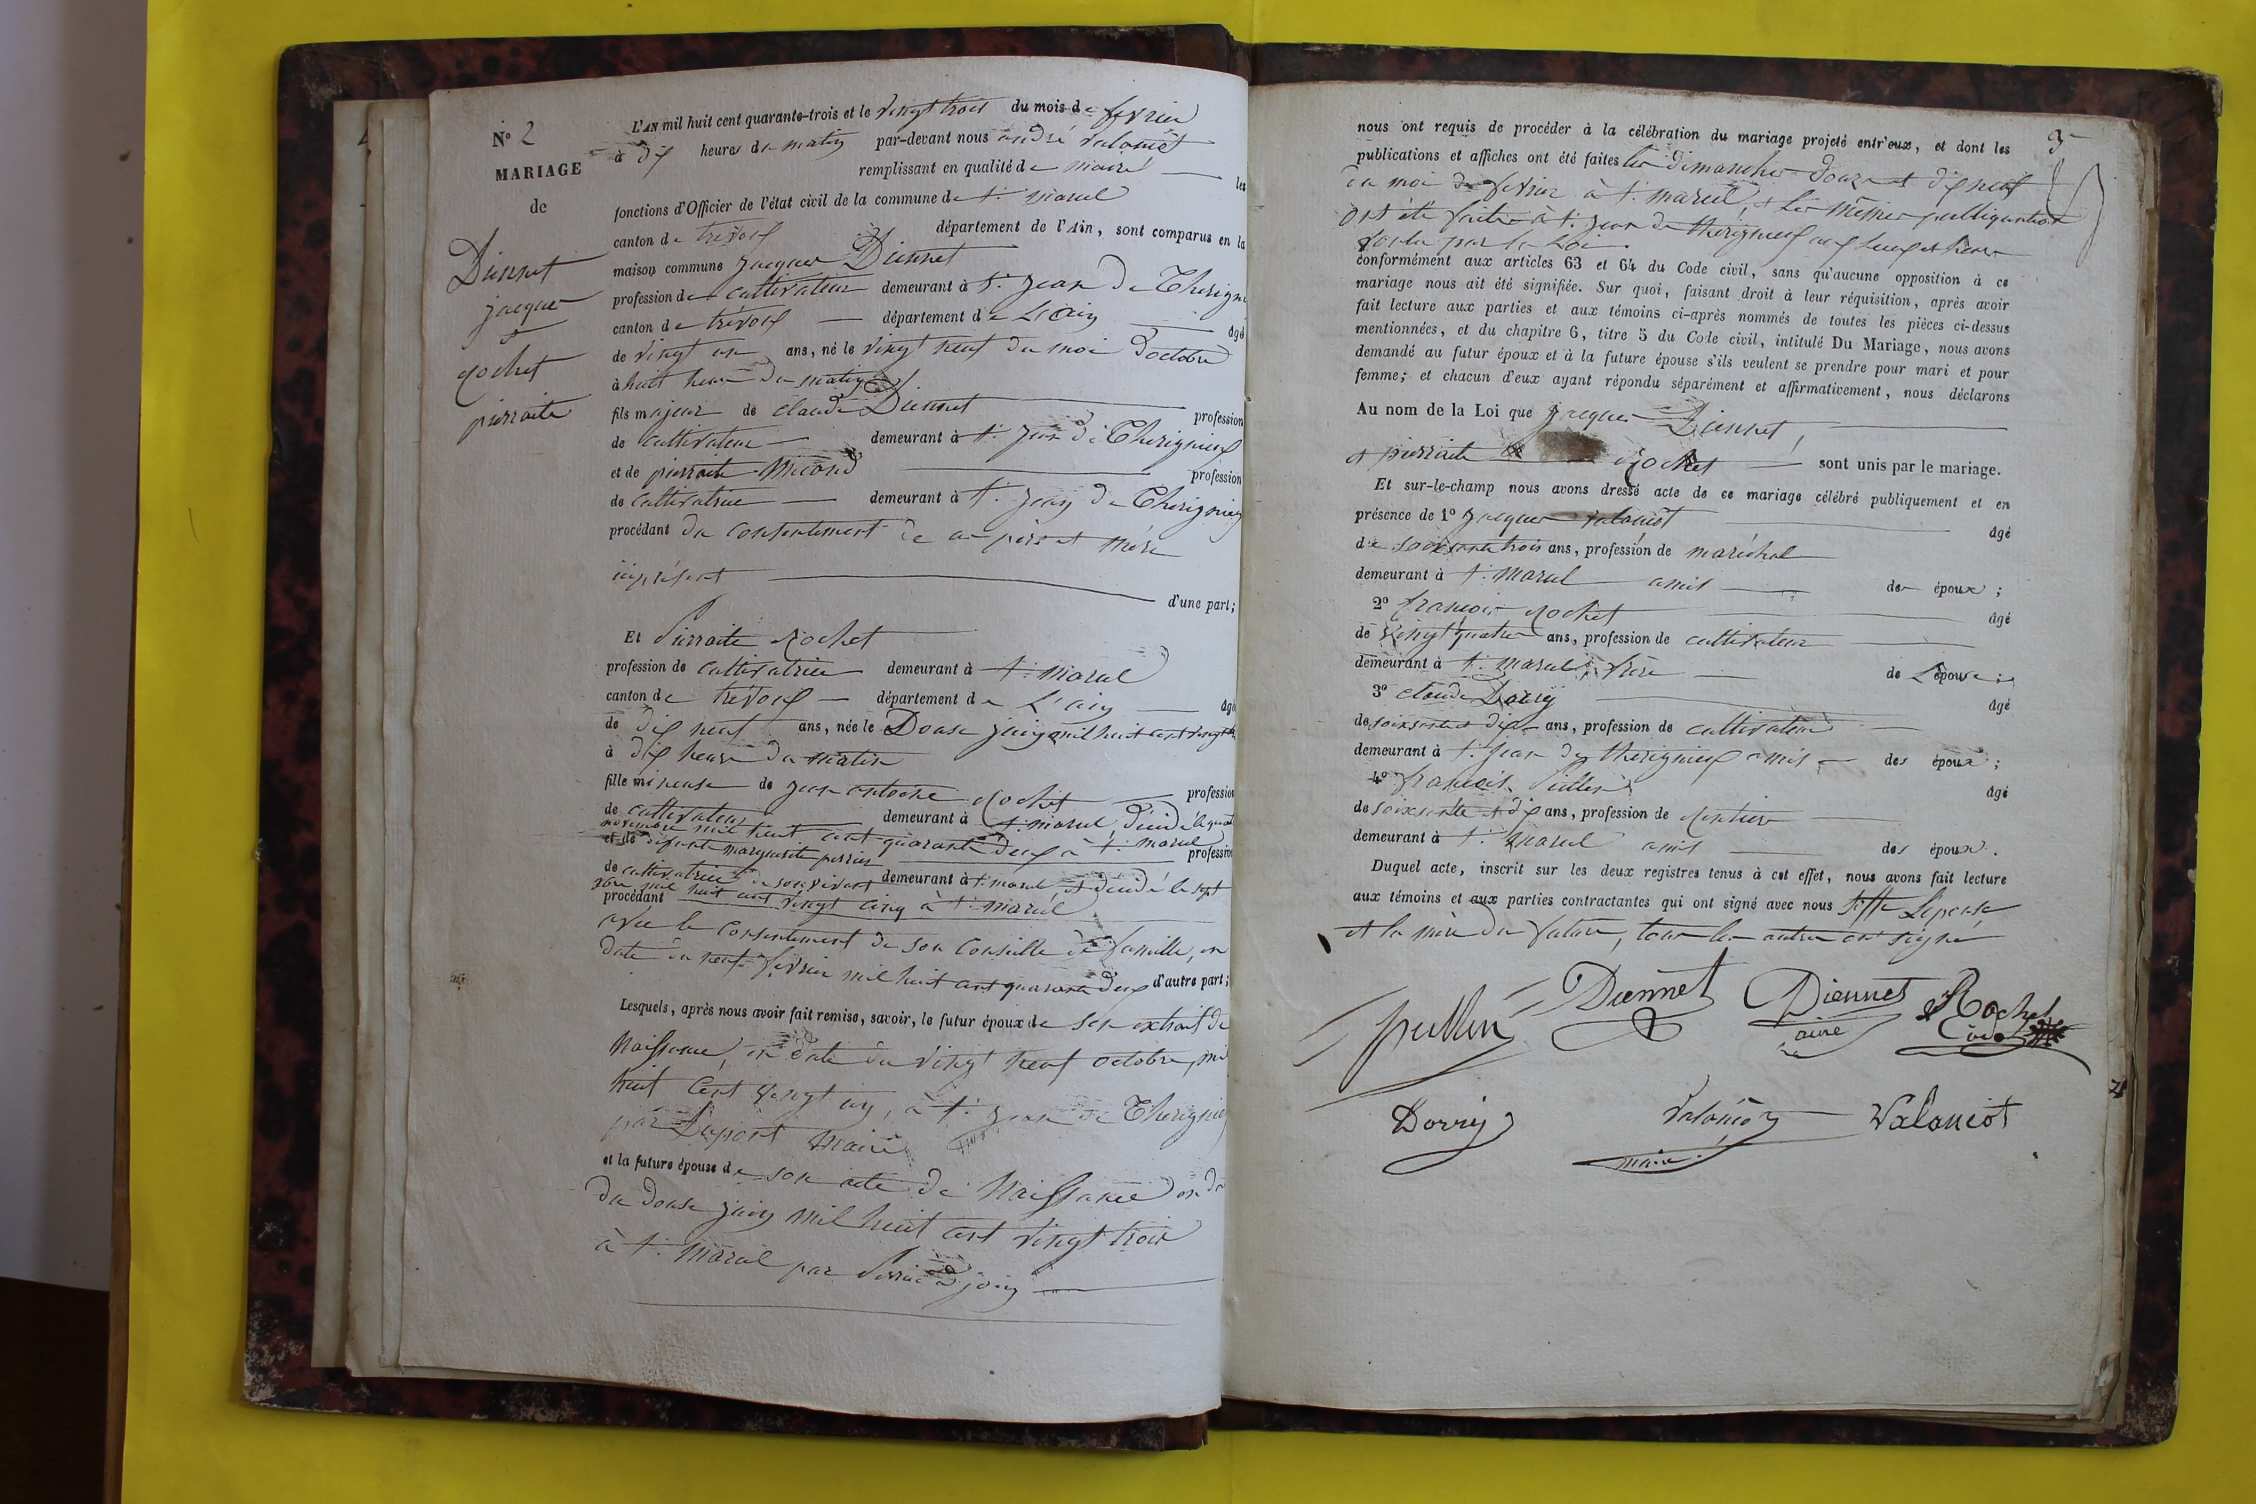 N° 2
MARIAGE
de
Diennet
jacque
et
Rochet
pierraite
L'AN mil huit cent quarante-trois et le vingt trois du mois de fevrier
à dix heures du matin par-devant nous andré valoncot
remplissant en qualité de maire les
fonctions d'Officier de l'état civil de la commune de St marcel
canton de trevoux département de l'Ain, sont comparus en la
maison commune jacques Diennet
profession de cultivateur demeurant à St jean de Thurigne
canton de trévoux département de L'ain âgé
de vingt un ans, né le vingt neuf du moi doctobre
à huit heure du matin
fils majeur de claude Diennet profession
de cultivateur demeurant à St jean de Thurignieux
et de pierraite Micond profession
de cultivatrice demeurant à St jean de Thurignieu
procédant du consentement de ce pere et mère
ici présent
d'une part;
Et Pierraite Rochet
profession de cultivatrice demeurant à St marcel
canton de trévoux département de L'ain âgé
de dix neuf ans, née le Douse juin mil huit cent vingt
à dix heure du matin
fille mineure de jean antoine Rochet profession
de cultivateur demeurant à St marcel décidé le quat
novembre mil huit cent quarante deux à St marcel
et de défunte marguerite perrier profession
de cultivatrice de son vivant demeurant à St marcel et décidé le sept
xbre mil huit cent vingt cinq à St marcel
procédant
avec le consentement de son conseille de famille, en
date du neuf fevrier mil huit cent quarante deux d'autre part;
Lesquels, après nous avoir fait remise, savoir, le futur époux de son extrait de
Naissance, en date du vingt neuf octobre, mil
huit cent vingt un, à St jean de Thurignieu
par Dupont Maire
et la future épouse de son acte de Naissance en da
du douse juin mil huit cent vingt trois
à St marcel par Perrier adjoin
nous ont requis de procéder à la célébration du mariage projeté entr'eux, et dont les
publications et affiches ont été faites les dimanche douze et dix neuf
du moi de fevrier à St marcel, et les mêmes publiquation
ont été faite à St jean de thurignieux aux leux et heure
voulu par la Loi
conformément aux articles 63 et 64 du Code civil, sans qu'aucune opposition à ce
mariage nous ait été signifiée. Sur quoi, faisant droit à leur réquisition, après avoir
fait lecture aux parties et aux témoins ci-après nommés de toutes les pièces ci-dessus
mentionnées, et du chapitre 6, titre 5 du Code civil, intitulé Du Mariage, nous avons
demandé au futur époux et à la future épouse s'ils veulent se prendre pour mari et pour
femme; et chacun d'eux ayant répondu séparément et affirmativement, nous déclarons
Au nom de la Loi que jacques Diennet,
et pierraite Rochet sont unis par le mariage.
Et sur-le-champ nous avons dressé acte de ce mariage célébré publiquement et en
présence de 1° jacques valoncot âgé
de soixsante trois ans, profession de maréchal
demeurant à St marcel amis des époux;
2° françois Rochet âgé
de vingt quatre ans, profession de cultivateur
demeurant à St marcel, frère de L'épouse;
3° claude Dorry âgé
de soixsante dix ans, profession de cultivateur
demeurant à St jean de thurignieux amis des époux;
4° françois Pullin âgé
de soixsante et dix ans, profession de Rentier
demeurant à St Marcel amis des époux.
Duquel acte, inscrit sur les deux registres tenus à cet effet, nous avons fait lecture
aux témoins et aux parties contractantes qui ont signé avec nous L'epouse
et la mère du future, tous les autres ont signé
pullin Diennet Diennet Rochet
ainé
Dorry Valoncot Valoncot
maire